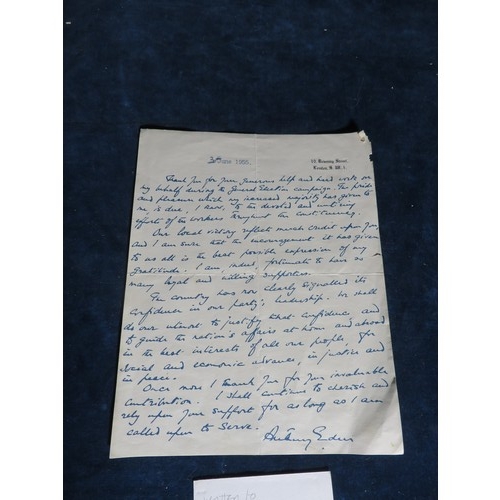 3rd June 1955.
12 Downing Street,
London, S.W.1.
Thank you for your generous help and hard work on
my behalf during the General Election campaign. The pride
and pleasure which my increased majority has given to
me is due, I know, to the devoted and untiring
efforts of the workers throughout the constituency.
Our local victory reflects much credit upon you,
and I am sure that the encouragement it has given
to us all is the best possible expression of my
gratitude. I am, indeed, fortunate to have so
many loyal and willing supporters.
The country has now clearly signalled its
confidence in our party's leadership. We shall
do our utmost to justify that confidence, and
to guide the nation's affairs at home and abroad
in the best interests of all our people, for
social and economic advance, in justice and
in peace.
Once more I thank you for your invaluable
contribution. I shall continue to cherish and
rely upon your support for as long as I am
called upon to serve.
Anthony Eden
to